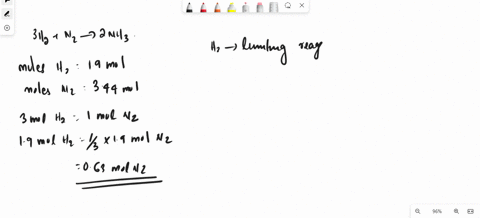 3H2 + N2 → 2NH3
moles H2 : 1.9 mol
moles N2 : 3.44 mol
3 mol H2 = 1 mol N2
1.9 mol H2 = 1/3 × 1.9 mol N2
= 0.63 mol N2
H2 → limiting reag
96%